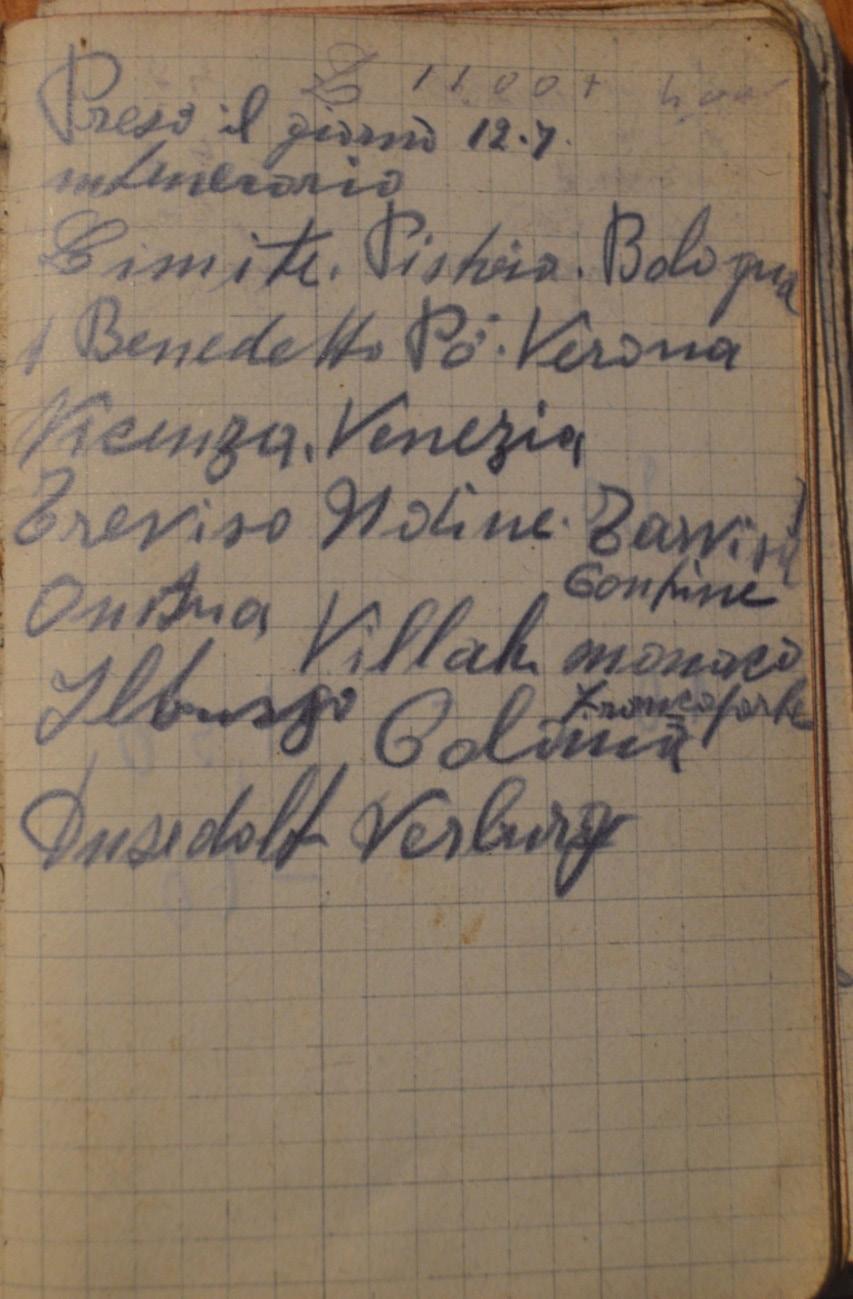 £ 1100+
Preso il giorno 12.7.
intenerario
Limite. Pistoia. Bologna
S Benedetto Pò. Verona
Vicenza. Venezia
Treviso Udine. Tarvisi
Confine
Villak monaco
Francoforte
Colonia
Dusedolf Verburg